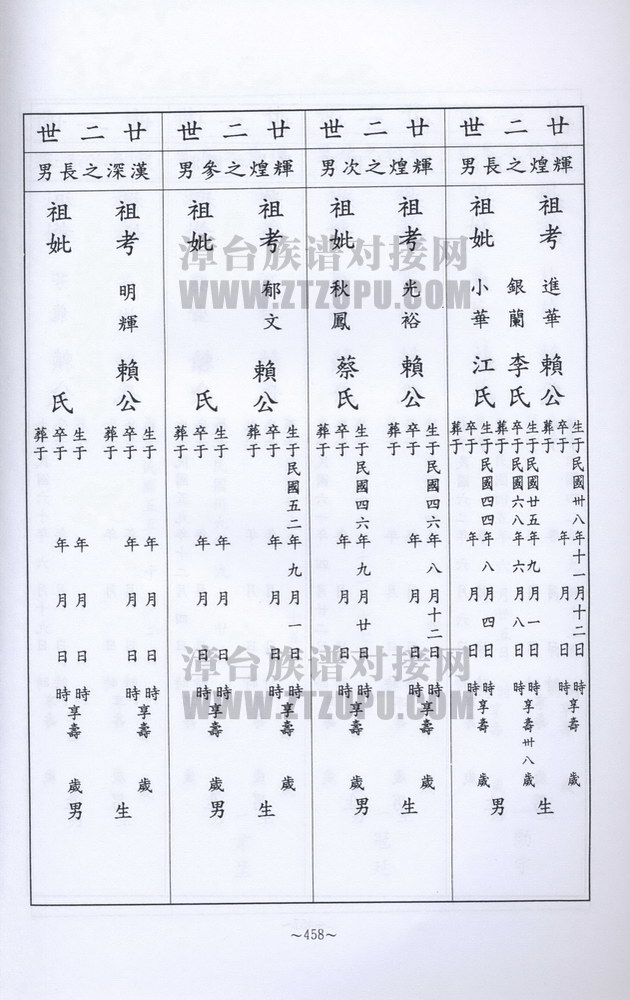 廿二世
輝煌之長男
祖考進華賴公
生于民國卅八年十一月十二日時享壽歲
卒于年月日時
葬于
銀蘭李氏
生于民國廿五年九月一日時享壽卅八歲
卒于民國六八年六月八日時
葬于
祖妣小華江氏
生于民國四四年八月四日時享壽歲
卒于年月日時
葬于
生男
廿二世
輝煌之次男
祖考光裕賴公
生于民國四六年八月十二日時享壽歲
卒于年月日時
葬于
祖妣秋鳳蔡氏
生于民國四六年九月廿日時享壽歲
卒于年月日時
葬于
生男
廿二世
輝煌之參男
祖考郁文賴公
生于民國五二年九月一日時享壽歲
卒于年月日時
葬于
祖妣氏
生于年月日時享壽歲
卒于年月日時
葬于
生男
廿二世
漢深之長男
祖考明輝賴公
生于年月日時享壽歲
卒于年月日時
葬于
祖妣氏
生于年月日時享壽歲
卒于年月日時
葬于
生男
漳台族谱对接网
WWW.ZTZUPU.COM
漳台族谱对接网
WWW.ZTZUPU.COM
~458~